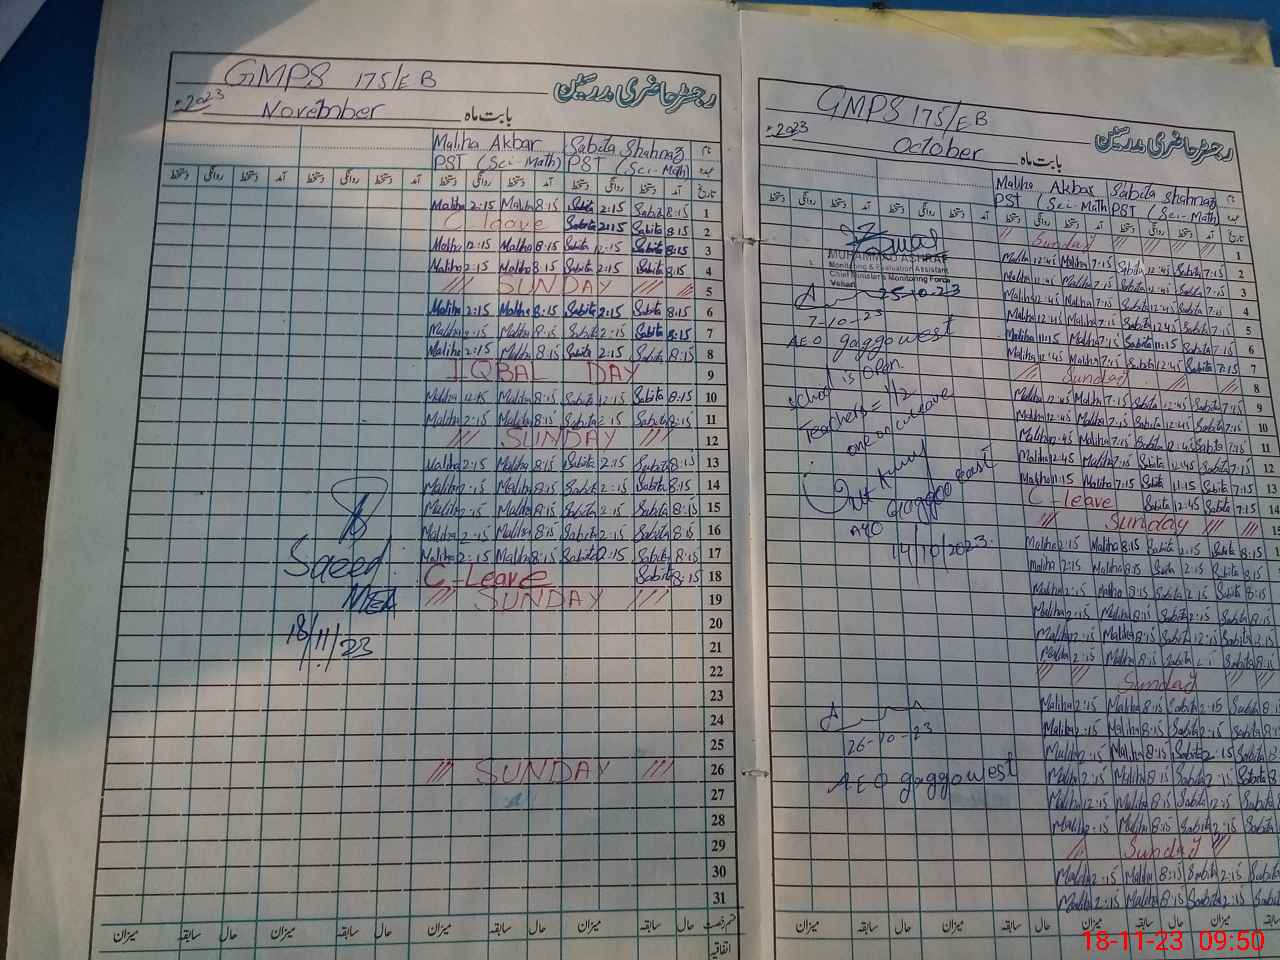 GMPS 175/EB
رجسٹر حاضری مدرسین
2023 November بابت ماہ
Maliha Akbar Sabita Shahnaz نام
PST (Sci-Math) PST (Sci-Math)
دستخط روانگی دستخط آمد دستخط روانگی دستخط آمد دستخط روانگی دستخط آمد تاریخ
Maliha 2:15 Maliha 8:15 Sabita 2:15 Sabita 8:15 1
C-leave Sabita 2:15 Sabita 8:15 2
Maliha 12:15 Maliha 8:15 Sabita 12:15 Sabita 8:15 3
Maliha 2:15 Maliha 8:15 Sabita 2:15 Sabita 8:15 4
SUNDAY 5
Maliha 2:15 Maliha 8:15 Sabita 2:15 Sabita 8:15 6
Maliha 2:15 Maliha 8:15 Sabita 2:15 Sabita 8:15 7
Maliha 2:15 Maliha 8:15 Sabita 2:15 Sabita 8:15 8
IQBAL DAY 9
Maliha 12:15 Maliha 8:15 Sabita 12:15 Sabita 8:15 10
Maliha 2:15 Maliha 8:15 Sabita 2:15 Sabita 8:15 11
SUNDAY 12
Maliha 2:15 Maliha 8:15 Sabita 2:15 Sabita 8:15 13
Maliha 2:15 Maliha 8:15 Sabita 2:15 Sabita 8:15 14
Maliha 2:15 Maliha 8:15 Sabita 2:15 Sabita 8:15 15
Maliha 2:15 Maliha 8:15 Sabita 2:15 Sabita 8:15 16
Maliha 2:15 Maliha 8:15 Sabita 2:15 Sabita 8:15 17
C-Leave Sabita 8:15 18
SUNDAY 19
20
21
22
23
24
25
SUNDAY 26
27
28
29
30
31
Saeed
MEA
18/11/23
میزان سابقہ حال میزان سابقہ حال میزان سابقہ حال
اتفاقیہ
GMPS 175/EB
رجسٹر حاضری مدرسین
2023 October بابت ماہ
Maliha Akbar Sabita Shahnaz نام
PST (Sci-Math) PST (Sci-Math)
Sunday 1
Maliha 12:45 Maliha 7:15 Sabita 12:45 Sabita 7:15 2
Maliha 12:45 Maliha 7:15 Sabita 12:45 Sabita 7:15 3
Maliha 12:45 Maliha 7:15 Sabita 12:45 Sabita 7:15 4
Maliha 12:45 Maliha 7:15 Sabita 12:45 Sabita 7:15 5
Maliha 11:15 Maliha 7:15 Sabita 11:15 Sabita 7:15 6
Maliha 12:45 Maliha 7:15 Sabita 12:45 Sabita 7:15 7
Sunday 8
Maliha 12:45 Maliha 7:15 Sabita 12:45 Sabita 7:15 9
Maliha 12:45 Maliha 7:15 Sabita 12:45 Sabita 7:15 10
Maliha 12:45 Maliha 7:15 Sabita 12:45 Sabita 7:15 11
Maliha 12:45 Maliha 7:15 Sabita 12:45 Sabita 7:15 12
Maliha 11:15 Maliha 7:15 Sabita 11:15 Sabita 7:15 13
C-leave Sabita 12:45 Sabita 7:15 14
Sunday 15
Maliha 2:15 Maliha 8:15 Sabita 2:15 Sabita 8:15
Maliha 2:15 Maliha 8:15 Sabita 2:15 Sabita 8:15
Maliha 2:15 Maliha 8:15 Sabita 2:15 Sabita 8:15
Maliha 2:15 Maliha 8:15 Sabita 2:15 Sabita 8:15
Maliha 12:15 Maliha 8:15 Sabita 12:15 Sabita 8:15
Maliha 2:15 Maliha 8:15 Sabita Sabita 8:15
Sunday
Maliha 2:15 Maliha 8:15 Sabita 2:15 Sabita 8:15
Maliha 2:15 Maliha 8:15 Sabita 2:15 Sabita 8:15
Maliha 2:15 Maliha 8:15 Sabita 2:15 Sabita
Maliha 2:15 Maliha 8:15 Sabita 2:15 Sabita
Maliha 12:15 Maliha 8:15 Sabita 12:15 Sabita
Maliha 2:15 Maliha 8:15 Sabita 2:15 Sabita
Sunday
Maliha 2:15 Maliha 8:15 Sabita 2:15 Sabita
Maliha 2:15 Maliha 8:15 Sabita 2:15 Sabita
MUHAMMAD ASHRAF
Monitoring & Evaluation Assistant
Chief Minister's Monitoring Force
Vehari
25-10-23
7-10-23
AEO gaggo west
School is open.
Teachers = 1/2
one on leave
AEO Gaggoo east
14/10/2023
26-10-23
AEO gaggo west
میزان سابقہ حال میزان سابقہ حال میزان سابقہ
18-11-23 09:50